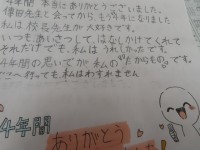 4年間 本当にありがとうございました。
倖田先生と会ってから もう4年になりました
私は 校長先生が 大好きです。
いつも あいさつして はなしかけてくれて
それだけでも、私は うれしかったです。
4年間の思いでが 私の"たからもの"です。
行っても 私はわすれません
4年間
ありがとう